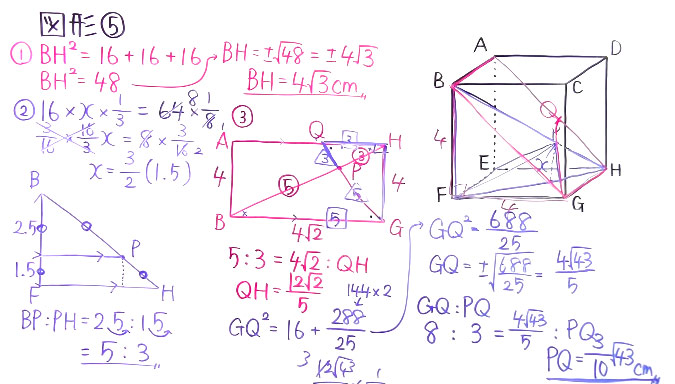 図形⑤
① BH² = 16 + 16 + 16
BH² = 48
BH = ±√48 = ±4√3
BH = 4√3 cm
② 16 × x × 1/3 = 64 × 1/8
8
1
3/16 × 16/3 x = 8 × 3/16 2
x = 3/2 (1.5)
B
2.5
P
1.5
F
H
BP : PH = 2.5 : 1.5
= 5 : 3
③
A
Q
3
H
3
3
P
4
5
5
4
B
4√2
5
G
5 : 3 = 4√2 : QH
QH = 12√2/5
144×2
GQ² = 16 + 288/25
3 12√43
1
A
D
B
C
4
E
x
H
F
4
G
GQ² = 688/25
GQ = ±√688/25 = 4√43/5
GQ : PQ
8 : 3 = 4√43/5 : PQ
PQ = 3/10 √43 cm
3